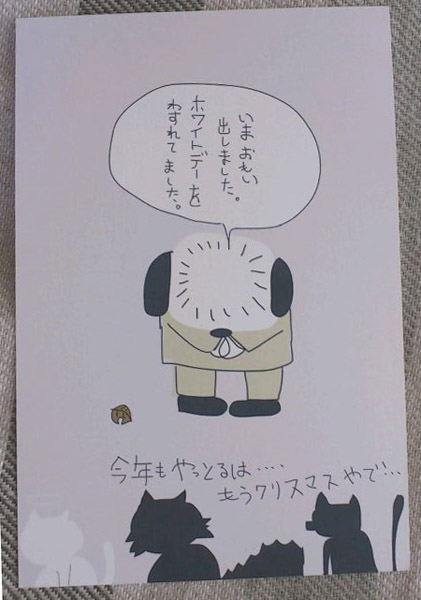 いまおもい
出しました。
ホワイトデーを
わすれてました。
今年もやっとるは‥‥
もうクリスマスやで!‥